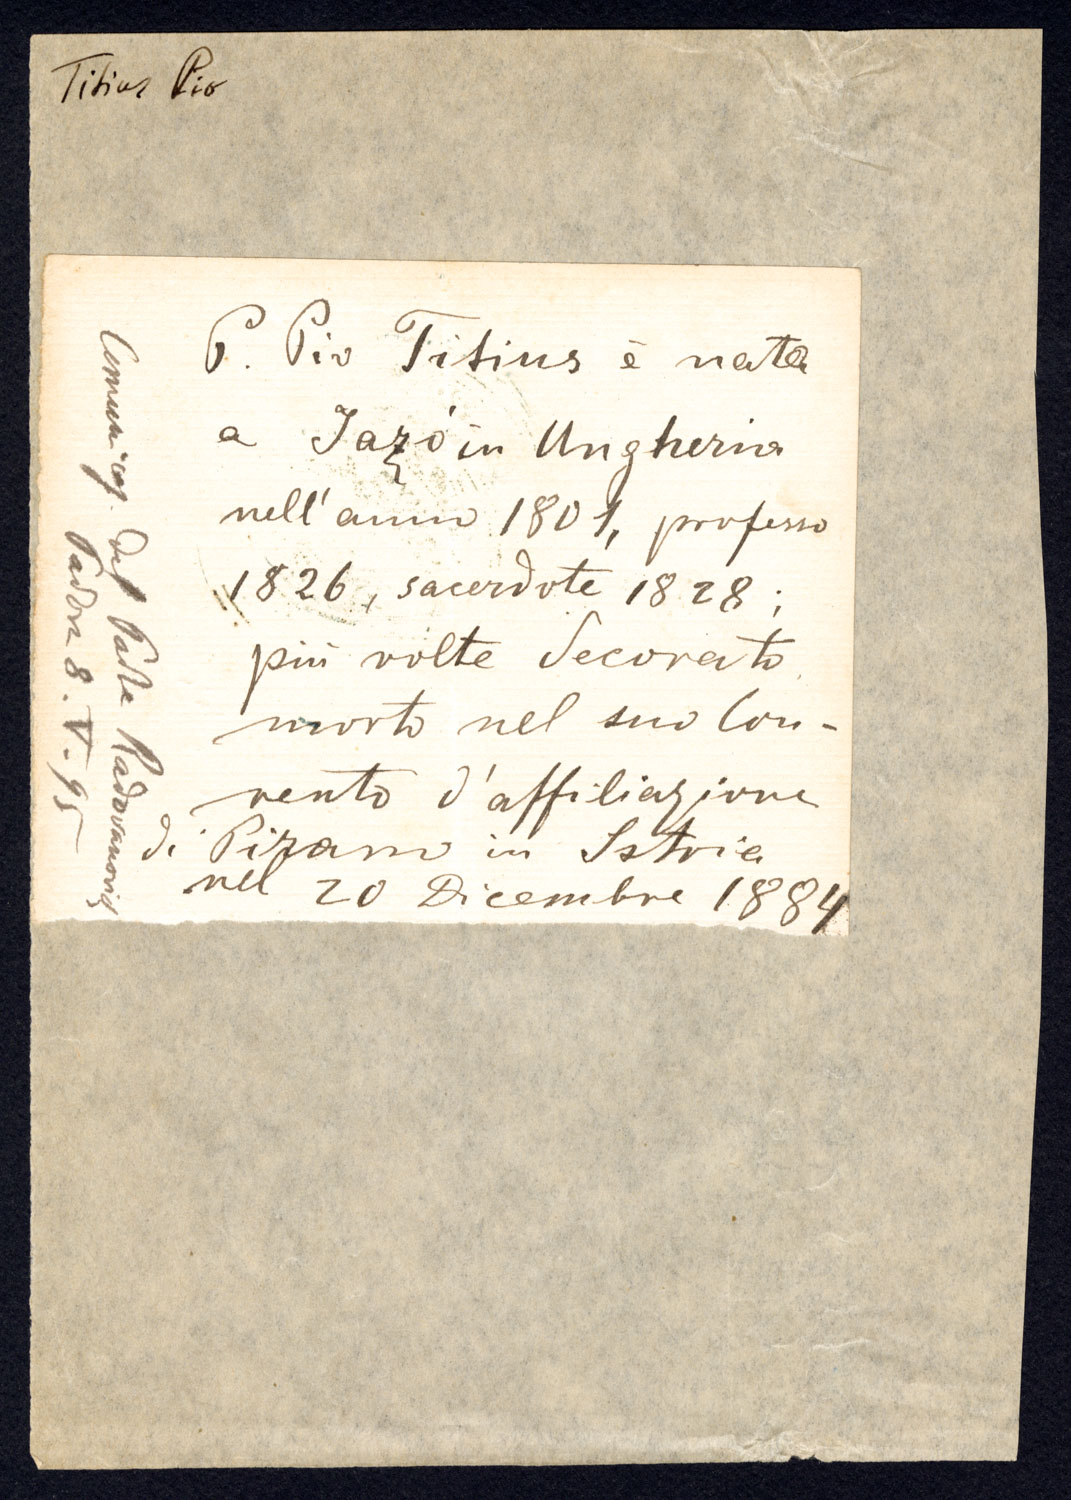 Titius Pio
P. Pio Titius è nato
a Jazó in Ungheria
nell'anno 1801, professo
1826, sacerdote 1828;
più volte decorato
morto nel suo Con-
vento d'affiliazione
di Pirano in Istria
nel 20 Dicembre 1884
del Padre Radovanovich
Padova 8. V. 95